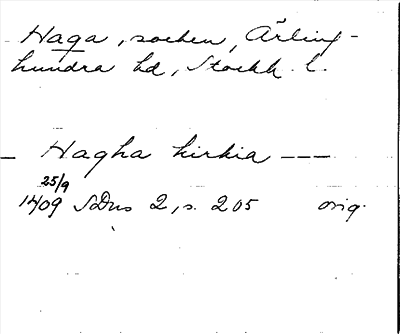 Haga, socken, Ärling-
hundra hd, Stockh. l.
— Hagha kirkia ---
25/9
1409 SDns 2, s. 205 orig.